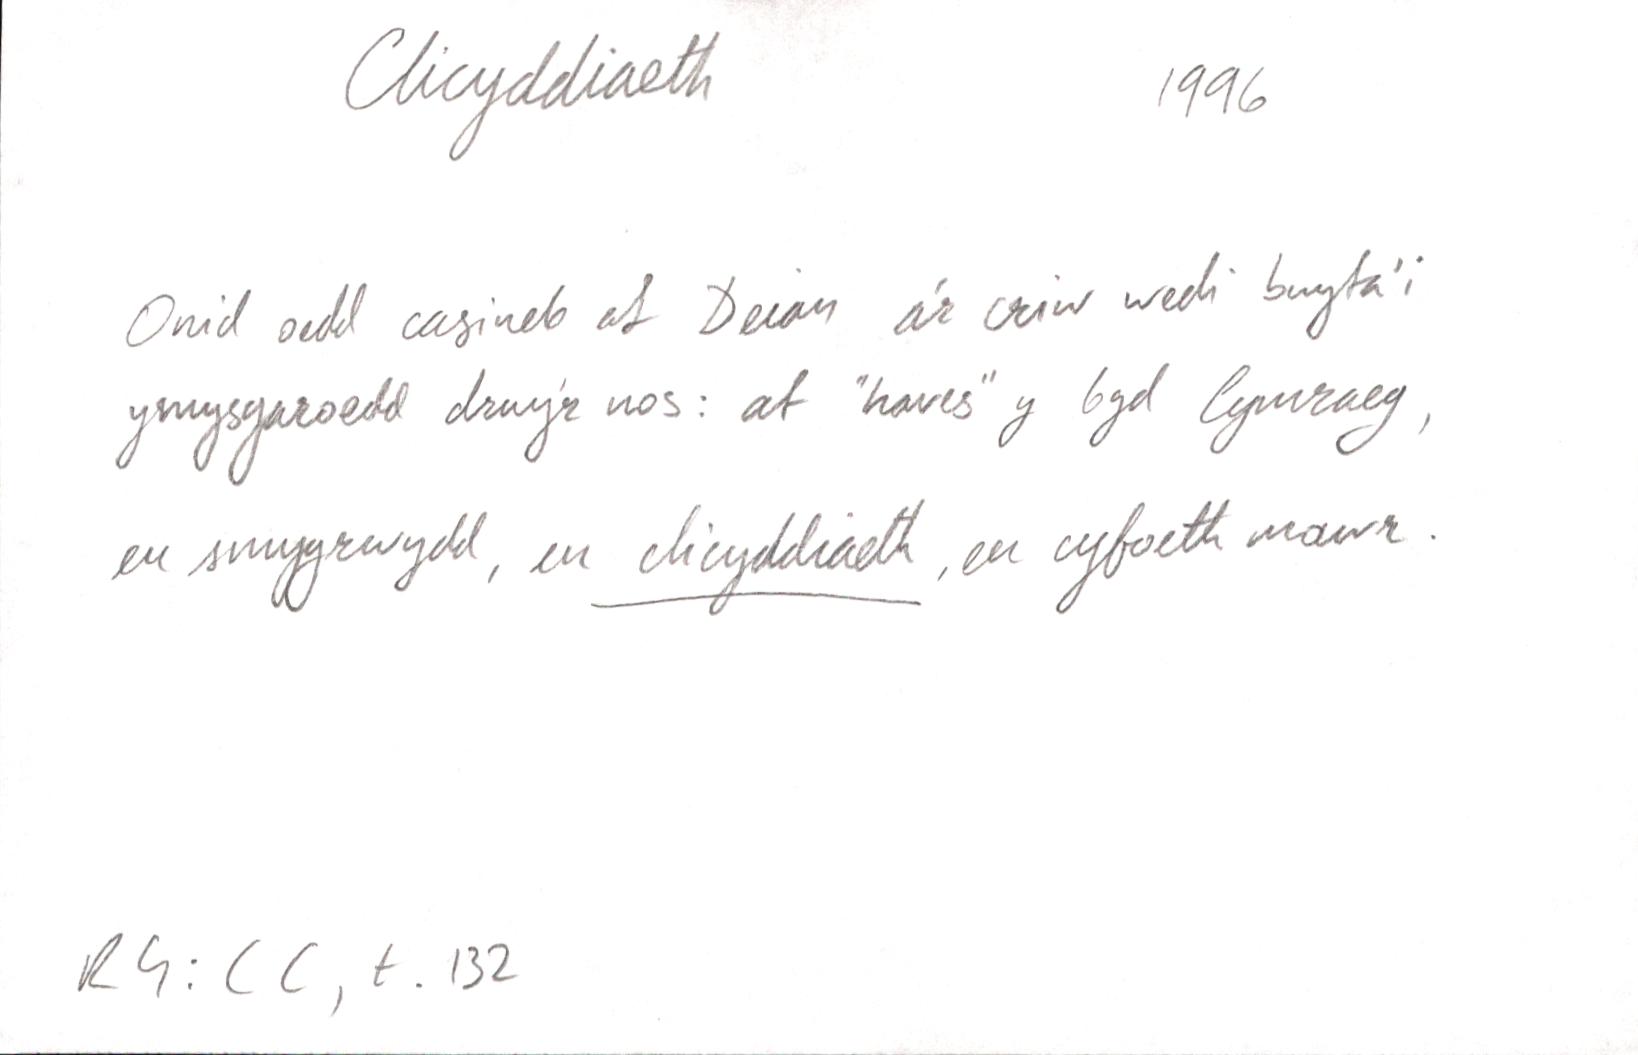 Clicyddiaeth 1996
Onid oedd casineb at Deian a'r criw wedi bwyta'i
ymysgaroedd drwy'r nos: at "haves" y byd Cymraeg,
eu smygrwydd, eu clicyddiaeth, eu cyfoeth mawr.
RG: CC, t. 132